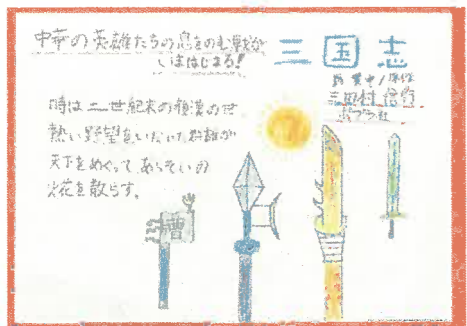 中華の英雄たちの息をのむ戦いが
いまはじまる!
三国志
三田村信行
ポプラ社
時は二世紀末の後漢の世
熱い野望をいだいた群雄が
天下をめぐってあらそいの
火花を散らす。
曹